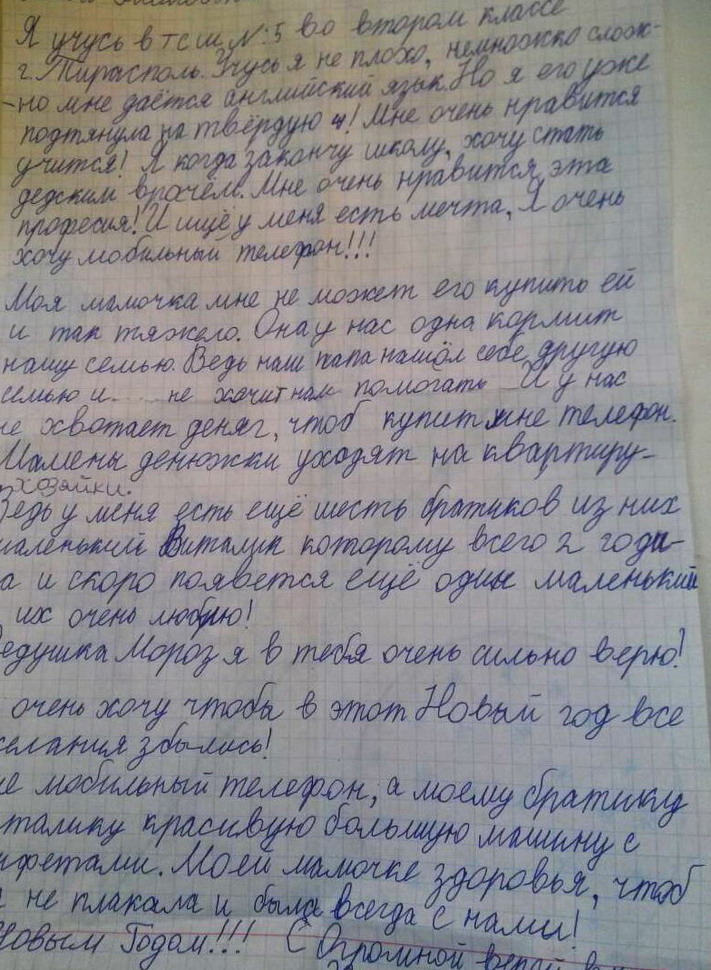 Я учусь в тсш №:5 во втором классе
г. Тирасполь. Учусь я не плохо, немножко слож-
-но мне даётся английский язык. Но я его уже
подтянула на твёрдую 4! Мне очень нравится
учится! Я когда закончу школу, хочу стать
дедским врачём. Мне очень нравится эта
професия! И ищё у меня есть мечта, Я очень
хочу мобильный телефон!!!
Моя мамочка мне не может его купить ей
и так тяжело. Она у нас одна кормит
нашу семью. Ведь наш папа нашол себе другую
семью и .... не хочит нам помогать И у нас
не хвотает деняг, чтоб купит мне телефон.
Мамены денюжки уходят на квартиру-
хозяйки.
Ведь у меня есть ещё шесть братиков из них
маленький Виталик которому всего 2 годи-
а и скоро появется ещё один маленький
их очень люблю!
Дедушка Мороз я в тебя очень сильно верю!
очень хочу чтобы в этот Новый год все
желания збылись!
не мобильный телефон, а моему братику
италику красивую большую машину с
нфетами. Моей мамочке здоровья, чтоб
не плакала и была всегда с нами!
Новым Годом!!! С Огромной верой